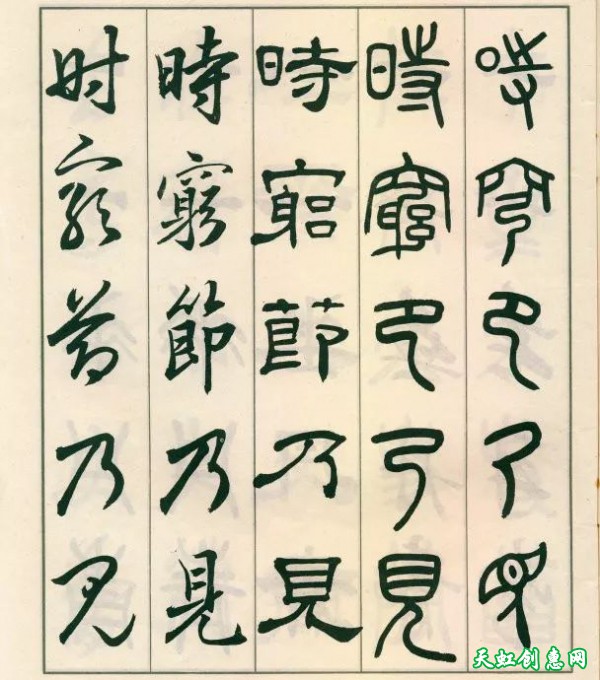 時窮節乃見
時窮節乃見
時窮節乃見
時窮節乃見
時窮節乃見
天虹创惠网